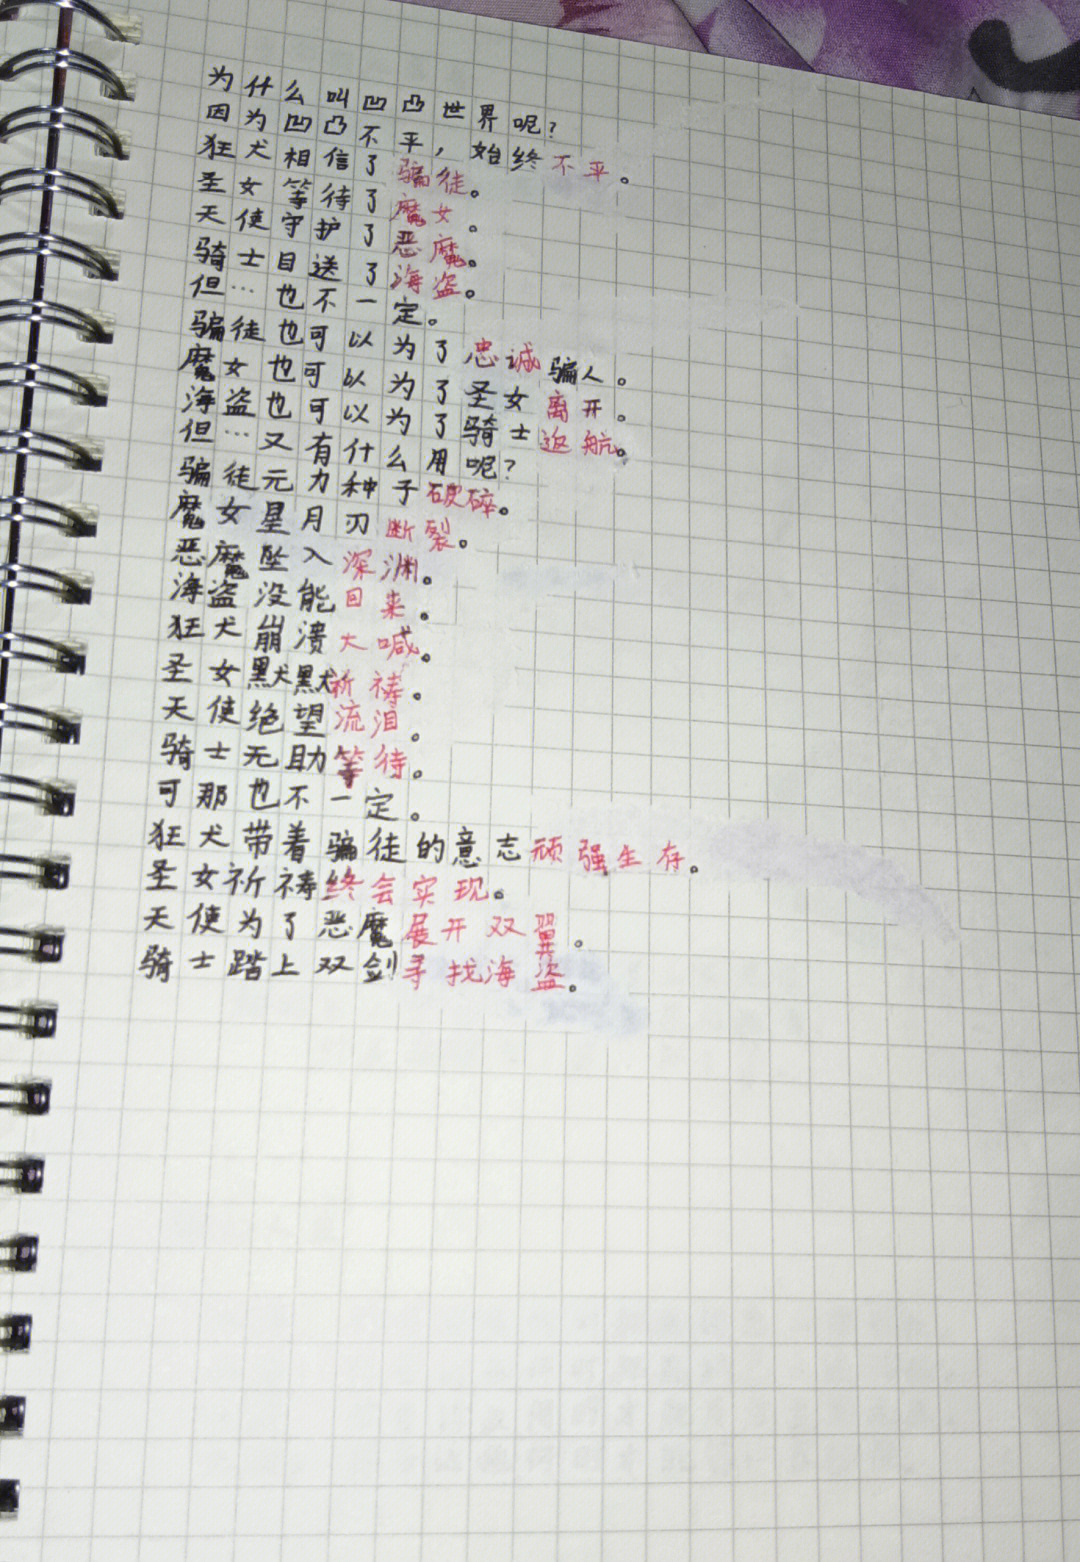 为什么叫凹凸世界呢?
因为凹凸不平，始终不平。
狂犬相信了骗徒。
圣女等待了魔女。
天使守护了恶魔。
骑士目送了海盗。
但…也不一定。
骗徒也可以为了忠诚骗人。
魔女也可以为了圣女离开。
海盗也可以为了骑士返航。
但…又有什么用呢?
骗徒元力种子破碎。
魔女星月刃断裂。
恶魔坠入深渊。
海盗没能回来。
狂犬崩溃大喊。
圣女默默祈祷。
天使绝望流泪。
骑士无助等待。
可那也不一定。
狂犬带着骗徒的意志顽强生存。
圣女祈祷终会实现。
天使为了恶魔展开双翼。
骑士踏上双剑寻找海盗。